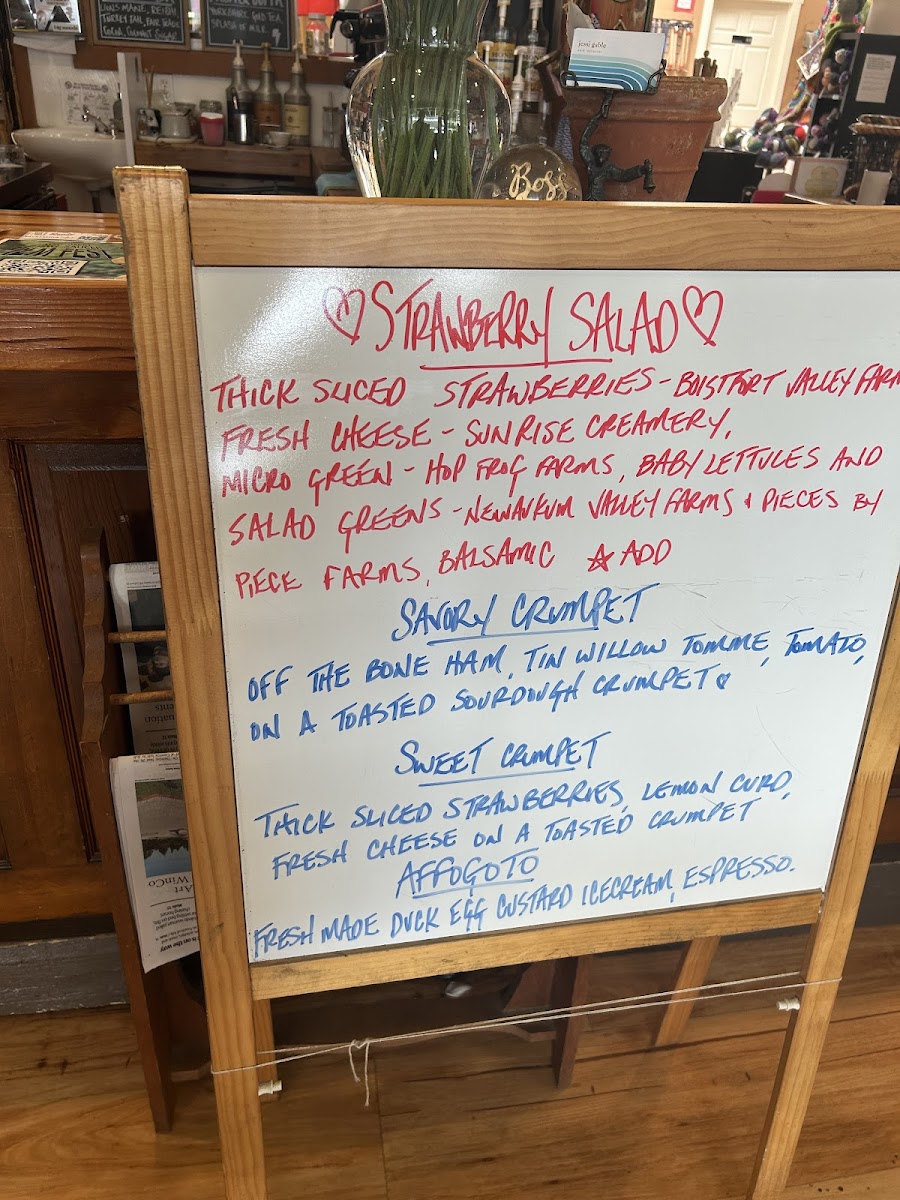 LIONS MANE, REISHI
TURKEY TAIL, FAIR TRADE
COCOA, COCONUT SUGAR
SPLASH OF MILK
jeni gable
Boss
♡ STRAWBERRY SALAD ♡
THICK SLICED STRAWBERRIES - BOISTFORT VALLEY FARM
FRESH CHEESE - SUNRISE CREAMERY,
MICRO GREEN - HOP FROG FARMS, BABY LETTUCES AND
SALAD GREENS - NEWAUKUM VALLEY FARMS & PIECES BY
PIECE FARMS, BALSAMIC ☆ ADD
SAVORY CRUMPET
OFF THE BONE HAM, TIN WILLOW TOMME, TOMATO,
ON A TOASTED SOURDOUGH CRUMPET ♡
SWEET CRUMPET
THICK SLICED STRAWBERRIES, LEMON CURD,
FRESH CHEESE ON A TOASTED CRUMPET
AFFOGOTO
FRESH MADE DUCK EGG CUSTARD ICECREAM, ESPRESSO.
Art
WinCo